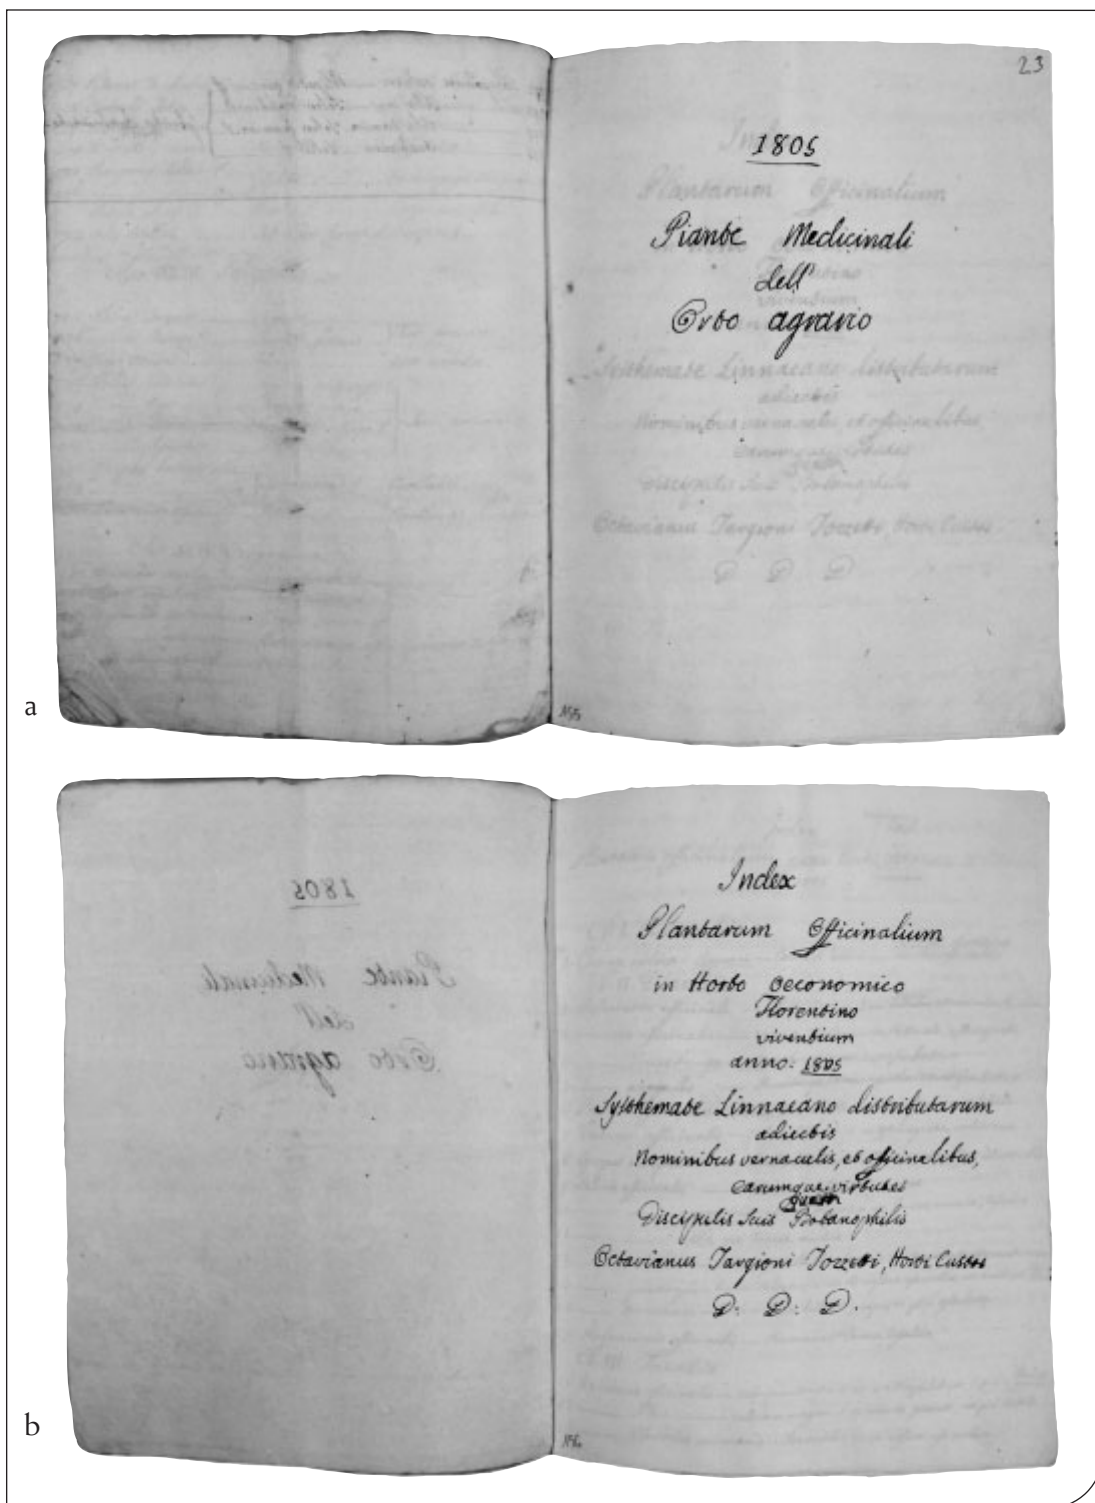 23
1805
Piante Medicinali
dell'
Orto agrario
a
Index
Plantarum Officinalium
in Horto oeconomico
Florentino
viventium
anno: 1805
Systhemate Linnaeano distributarum
adiectis
Nominibus vernaculis, et officinalibus,
earumque virtutes
quam
Discipulis suis Botanophilis
Octavianus Targioni Tozzetti, Horti Custos
D: D: D.
b